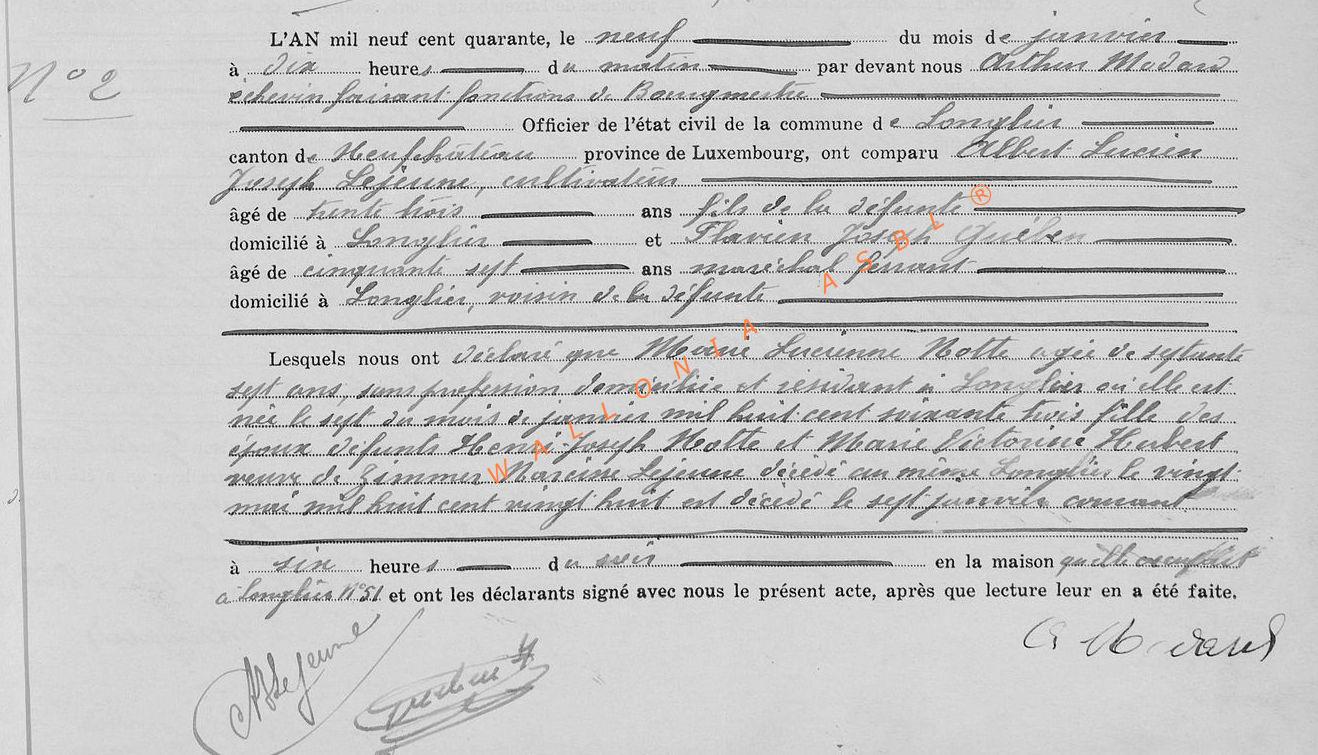 L'AN mil neuf cent quarante, le neuf du mois de janvier
N° 2
à dix heures du matin par devant nous Arthur Médard
échevin faisant fonctions de Bourgmestre
Officier de l'état civil de la commune de Longlier
canton de Neufchâteau province de Luxembourg, ont comparu Albert Lucien
Joseph Lejeune, cultivateur
âgé de trente trois ans fils de la défunte
domicilié à Longlier et Flavien Joseph Guében
âgé de cinquante sept ans maréchal ferrant
domicilié à Longlier, voisin de la défunte
Lesquels nous ont déclaré que Marie Lucienne Notte agée de septante
sept ans, sans profession domiciliée et résidant à Longlier où elle est
née le sept du mois de janvier mil huit cent soixante trois fille des
époux défunts Henri-Joseph Notte et Marie Victorine Hubert
veuve de Lejeune décédé au même Longlier le vingt
mai mil huit cent vingt huit est décédé le sept janvier courant
à six heures du soir en la maison qu'elle occupait
à Longlier N°51 et ont les déclarants signé avec nous le présent acte, après que lecture leur en a été faite.
A Lejeune
WALLONIA ASBL ®